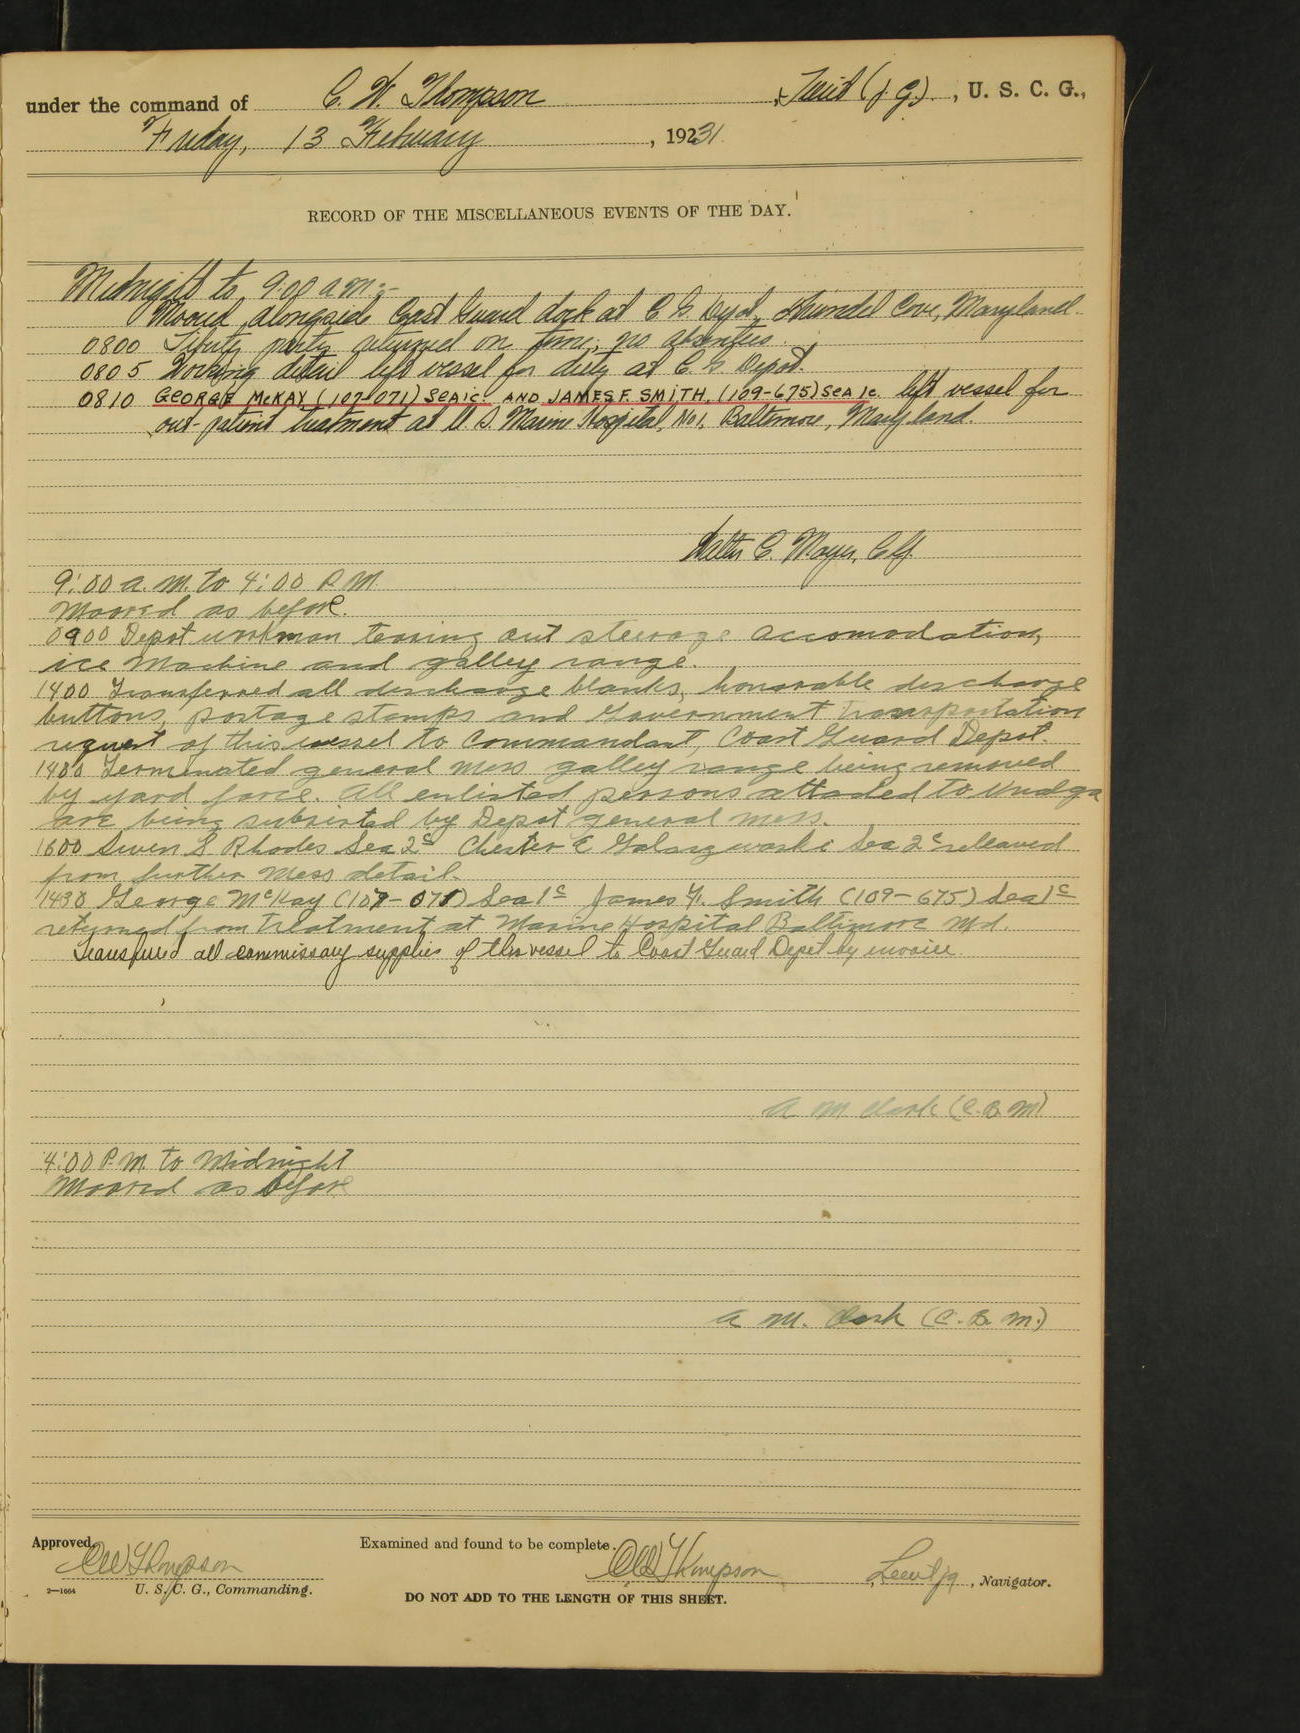 under the command of C. W. Thompson, Lieut (j. G.), U. S. C. G.,
Friday, 13 February, 19231
RECORD OF THE MISCELLANEOUS EVENTS OF THE DAY.
Midnight to 9:00 a m:-
Moored alongside Coast Guard dock at C G Depot, Arundel Cove, Maryland.
0800 Liberty party returned on time; no absentees.
0805 Working detail left vessel for duty at C. G Depot.
0810 GEORGE McKAY (107-071) SEA1C AND JAMES F. SMITH, (109-675) SEA 1C. left vessel for
out-patient treatment at U. S. Marine Hospital, No1, Baltimore, Maryland.
Walter C. Mayer,
9:00 a. m. to 4:00 P. M.
Moored as before.
0900 Depot workman tearing out steerage accomodation,
ice machine and galley range.
1400 Transferred all discharge blanks, honorable discharge
buttons, postage stamps and Government Transportation
request of this vessel to Commandant, Coast Guard Depot.
Terminated general mess galley range being removed
by yard force. All enlisted persons attached to
are being subsisted by Depot general mess.
1600 S Rhodes Sea 2c Chester E Sea 2c releaved
from further mess detail.
1430 George McKay (107-071) Sea 1c James F. Smith (109-675) Sea 1c
returned from treatment at Marine Hospital Baltimore Md.
Transferred all commissary supplies of this vessel to Coast Guard Depot by invoice
A M Clark (C. B. M)
4:00 P. M. to Midnight
Moored as before
A M. Clark (C. B. M.)
Approved, CW Thompson
U. S. C. G., Commanding.
Examined and found to be complete. CW Thompson, Lieut jg, Navigator.
2—1664
DO NOT ADD TO THE LENGTH OF THIS SHEET.